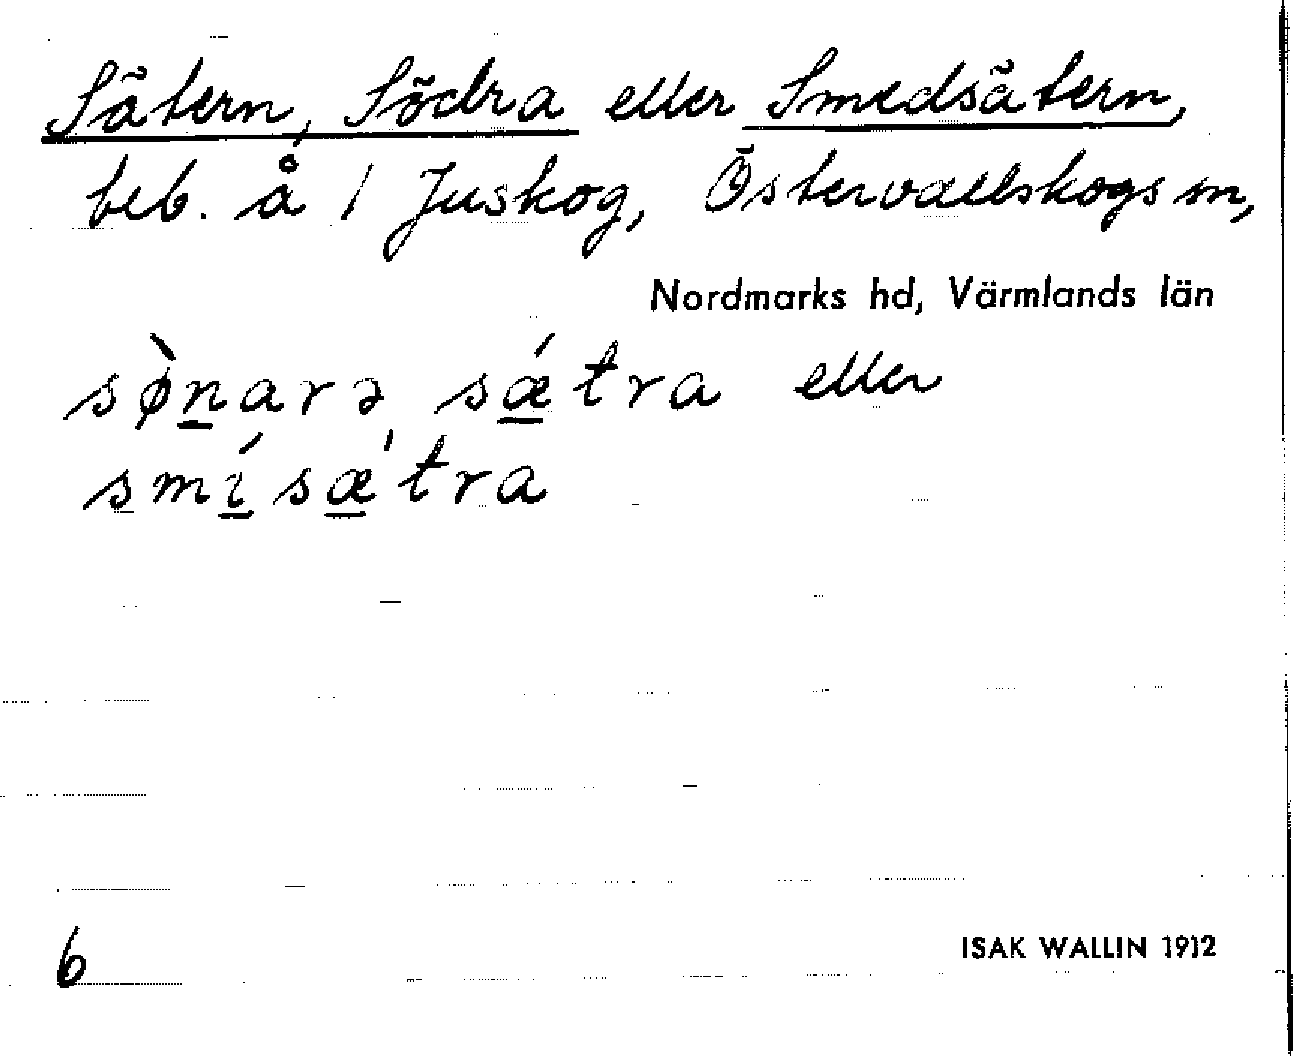 Sätern, Södra eller Smedsätern,
beb. å 1 Juskog, Östervallskogs sn,
Nordmarks hd, Värmlands län
sø̀n̲arə sǽ̲tra eller
smí̲sǽ̲tra
6
ISAK WALLIN 1912